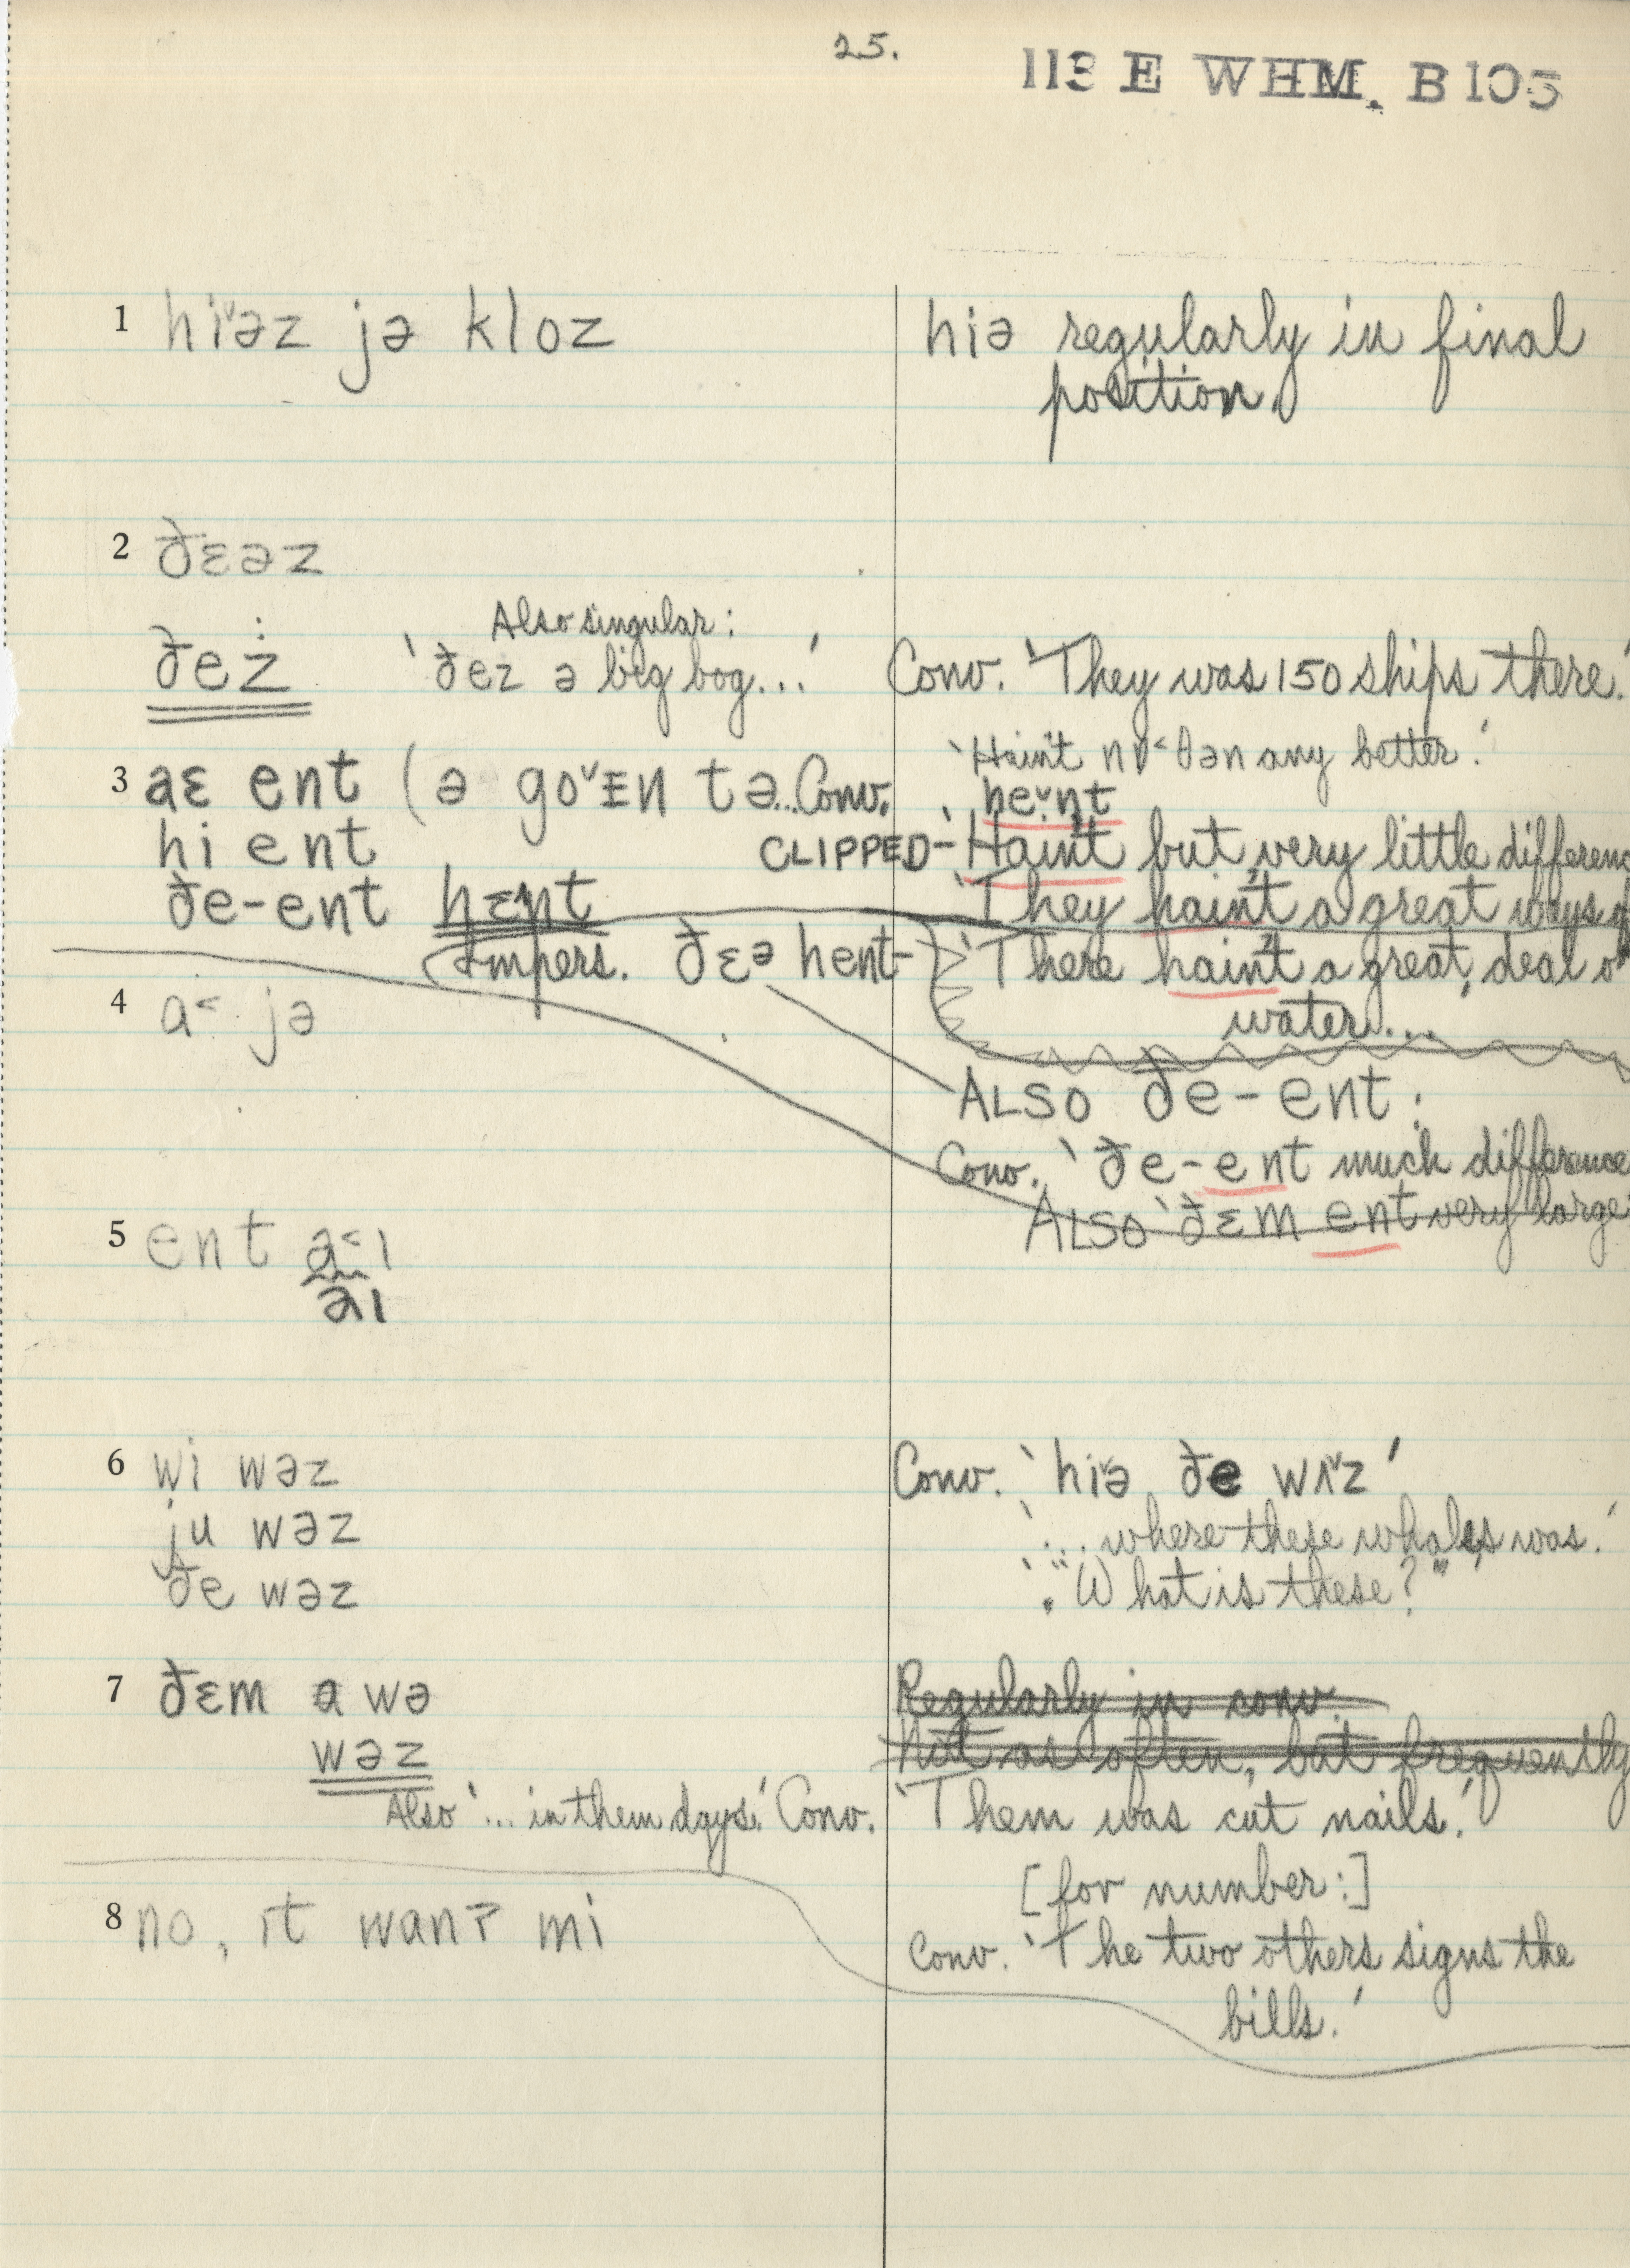 25.
113 E WHM. B105
1 hi˅əz jə kloz
hiə regularly in final
position.
2 ðɛəz
Also singular:
ðez 'ðez ə big bog...'
Conv. 'They was 150 ships there.'
'Hain't nɒ˂ðən any better.'
3 aɛ ent (ə go˅ɪn tə... Conv.
'he˅nt
hi ent
CLIPPED- 'Hain't but very little differenc
ðe-ent hɛnt
'They hain't a great ways
Impers. ðɛə hent-
'There hain't a great deal o
water...'
4 a˂ jə
ALSO ðe-ent:
Conv. 'ðe-ent much difference
ALSO 'ðɛm ent very large
5 ent a˂ɪ
əɪ
6 wi wəz
Conv. 'hi˅ə ðe wʌ˅z'
ju wəz
'... where these whales was.'
ðe wəz
'"What is these?"'
7 ðɛm a wə
Regularly in conv.
wəz
Not as often, but frequently
Also '... in them days.' Conv.
'Them was cut nails.'
[for number:]
8 no, ɪt wanʔ mi
Conv. 'The two others signs the
bills.'